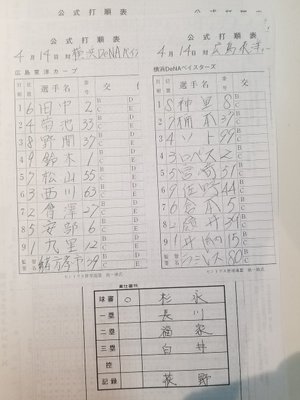 公式打順表
4月14対横浜DeNAベイ
広島東洋カープ
選手名
1 6 田中 2
2 4 菊池 33
3 8 野間 37
4 9 鈴木 1
5 7 松山 55
6 3 西川 63
7 2 會澤 27
8 5 安部 6
9 1 九里 12
監督 緒方孝市 79
公式打順表
4月14対広島東洋
横浜DeNAベイスターズ
選手名
1 8 神里 8
2 9 楠本 37
3 4 ソト 99
4 3 ロペス 2
5 5 宮﨑 51
6 7 佐野 44
7 6 倉本 5
8 2
9 1 井納 15
監督 ラミレス 80
責任審判
球審 ○ 杉永
一塁 長川
二塁 福家
三塁 白井
控
記録 荻野